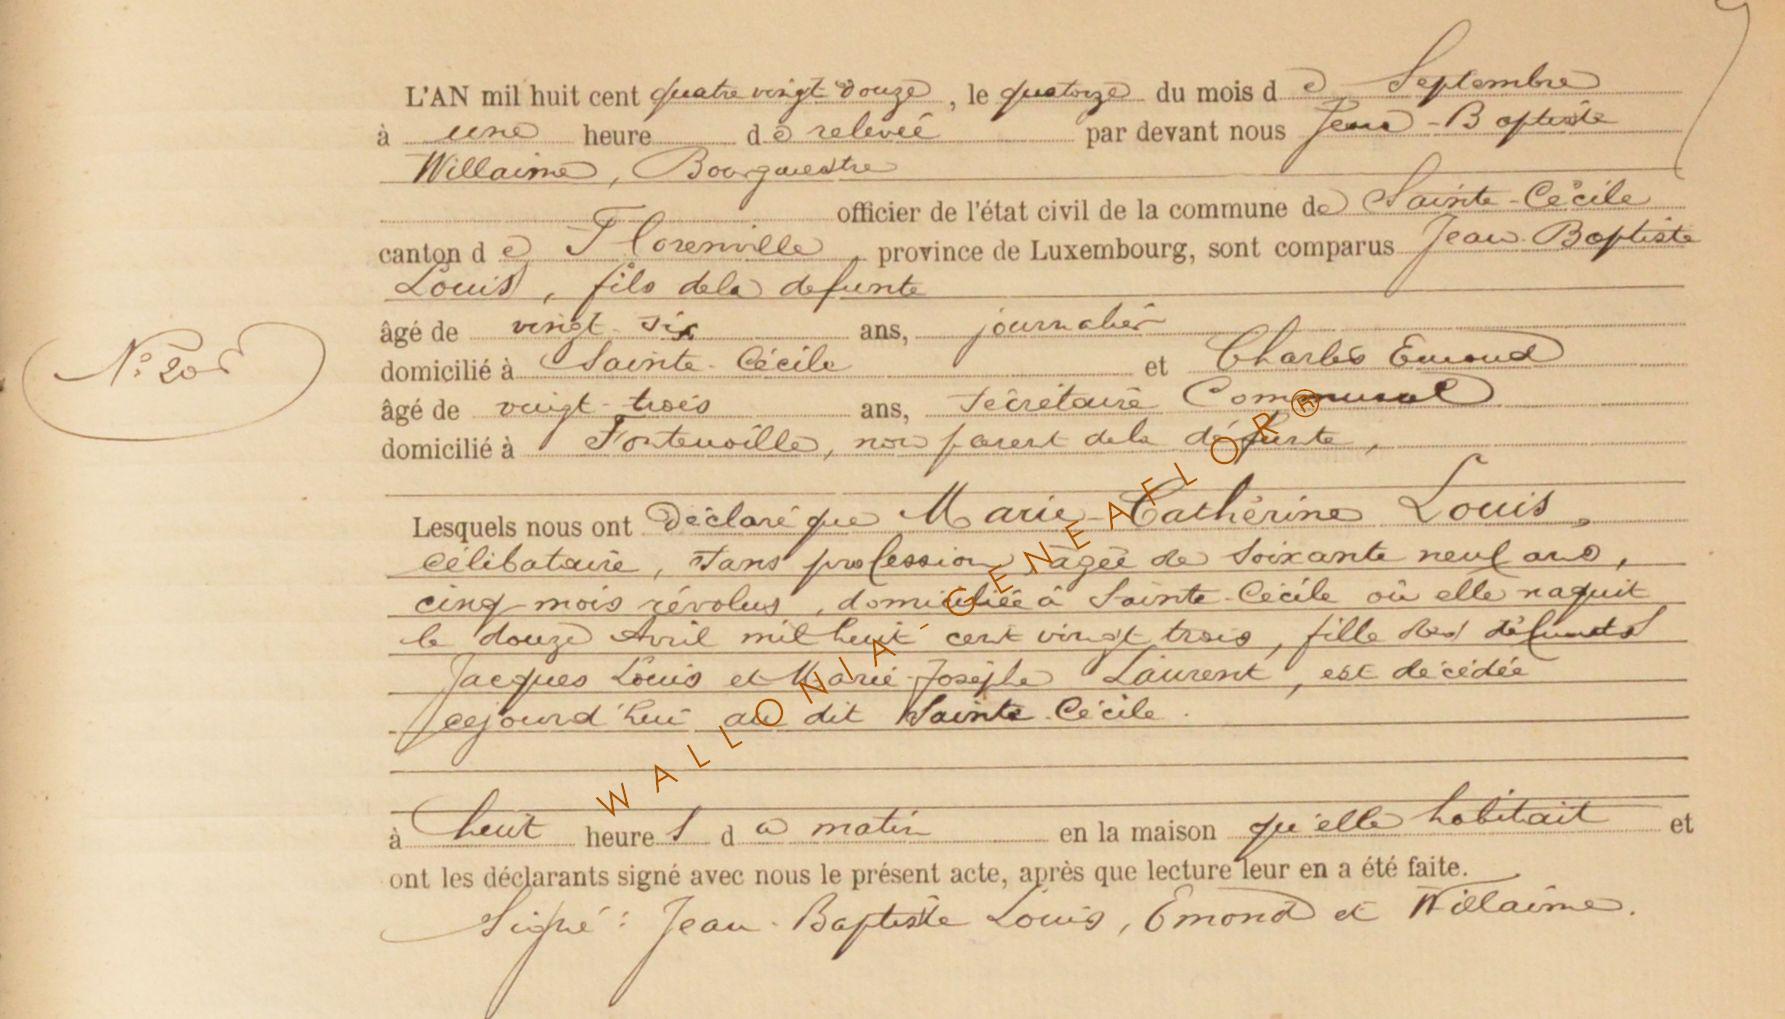 L'AN mil huit cent quatre vingt douze, le quatorze du mois de Septembre
à une heure de relevée par devant nous Jean-Baptiste
Willaime, Bourgmestre
officier de l'état civil de la commune de Sainte-Cécile
canton de Florenville, province de Luxembourg, sont comparus Jean-Baptiste
Louis, fils dela defunte
âgé de vingt-six ans, journalier
domicilié à Sainte-Cécile et Charles Emond
âgé de vingt-trois ans, Secrétaire Communal
domicilié à Fontenoille, non parent dela défunte,
N° 20
Lesquels nous ont déclaré que Marie-Cathérine Louis,
célibataire, sans profession, agée de soixante neuf ans,
cinq mois révolus, domiciliée à Sainte-Cécile où elle naquit
le douze Avril mil huit-cent vingt trois, fille des défunts
Jacques Louis et Marie-Josèphe Laurent, est décédée
cejourd'hui au dit Sainte-Cécile.
à huit heures du matin en la maison qu'elle habitait et
ont les déclarants signé avec nous le présent acte, après que lecture leur en a été faite.
Signé: Jean-Baptiste Louis, Emond et Willaime.
WALLONIA-GENEAFLOR®